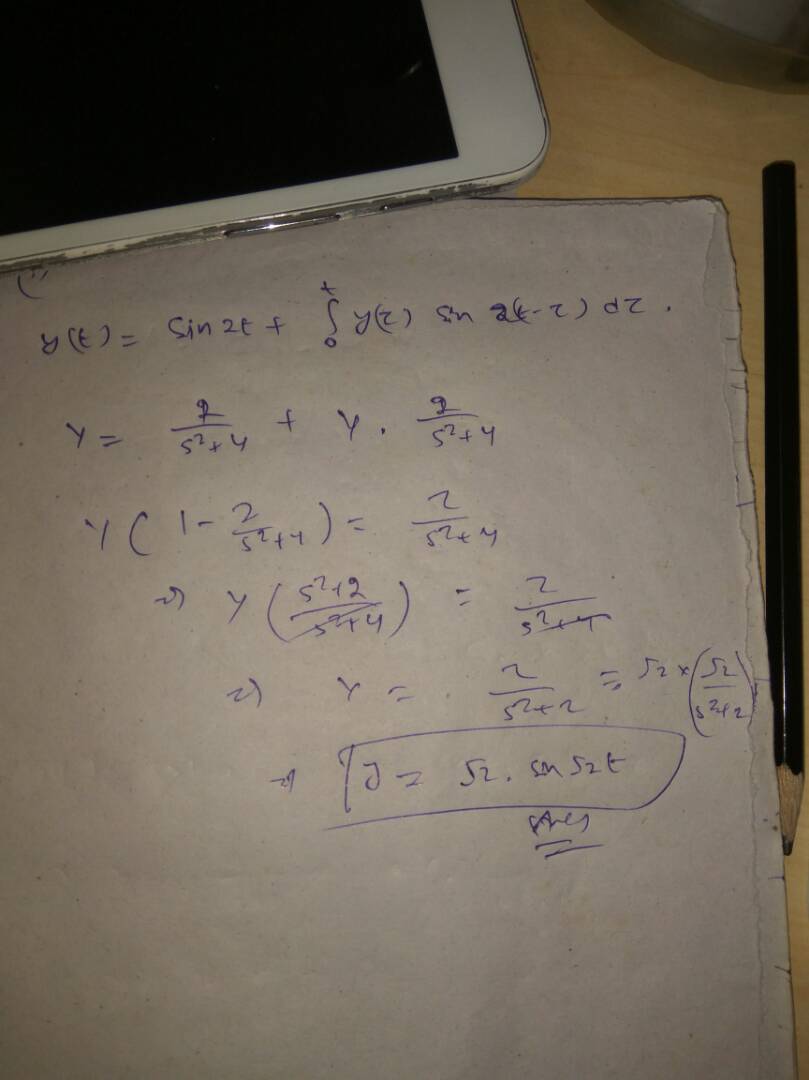 y(t) = Sin 2t + ∫₀ᵗ y(τ) sin 2(t-τ) dτ.
Y = 2/(s²+4) + Y . 2/(s²+4)
Y ( 1 - 2/(s²+4) ) = 2/(s²+4)
⇒ Y ( (s²+2)/(s²+4) ) = 2/(s²+4)
⇒ Y = 2/(s²+2) = √2 × ( √2/(s²+2) )
⇒ y = √2 . sin √2t